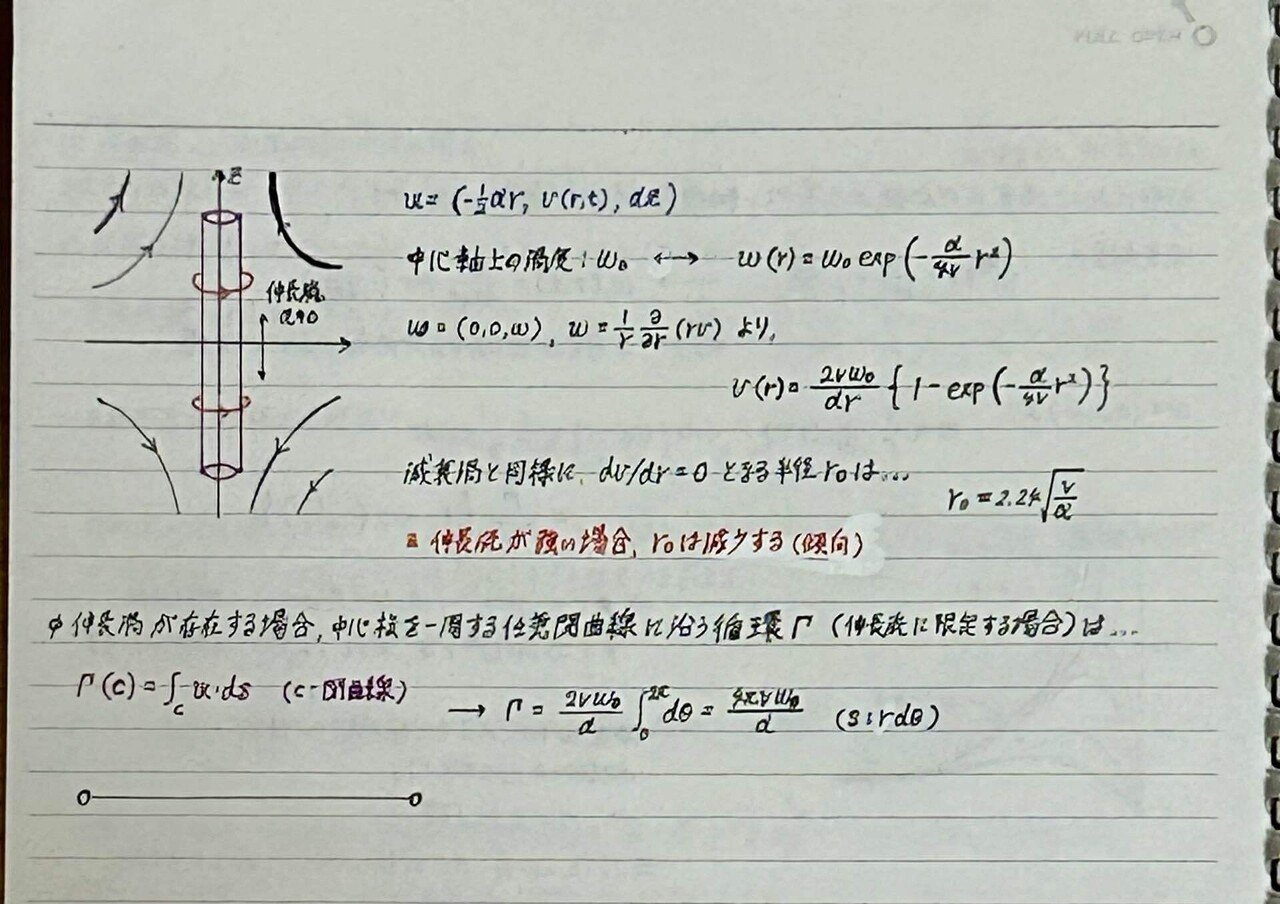 z
u = (-½αr, v(r,t), αz)
中心軸上の渦度:ω₀ ⟷ ω(r) = ω₀ exp(-α/4ν r²)
伸長流
α≠0
ω = (0,0,ω), ω = 1/r ∂/∂r (rv) より,
v(r) = 2νω₀/αr { 1 - exp(-α/4ν r²)}
減衰渦と同様に, dv/dr = 0 となる半径 r₀は…
r₀ = 2.24√(ν/α)
伸長流が強い場合, r₀は減少する(傾向)
伸長渦が存在する場合,中心核を一周する任意閉曲線に沿う循環Γ (伸長流に限定する場合)は…
Γ(c) = ∫c u・ds (c-閉曲線) → Γ = 2νω₀/α ∫₀^2π dθ = 4πνω₀/α (s:rdθ)